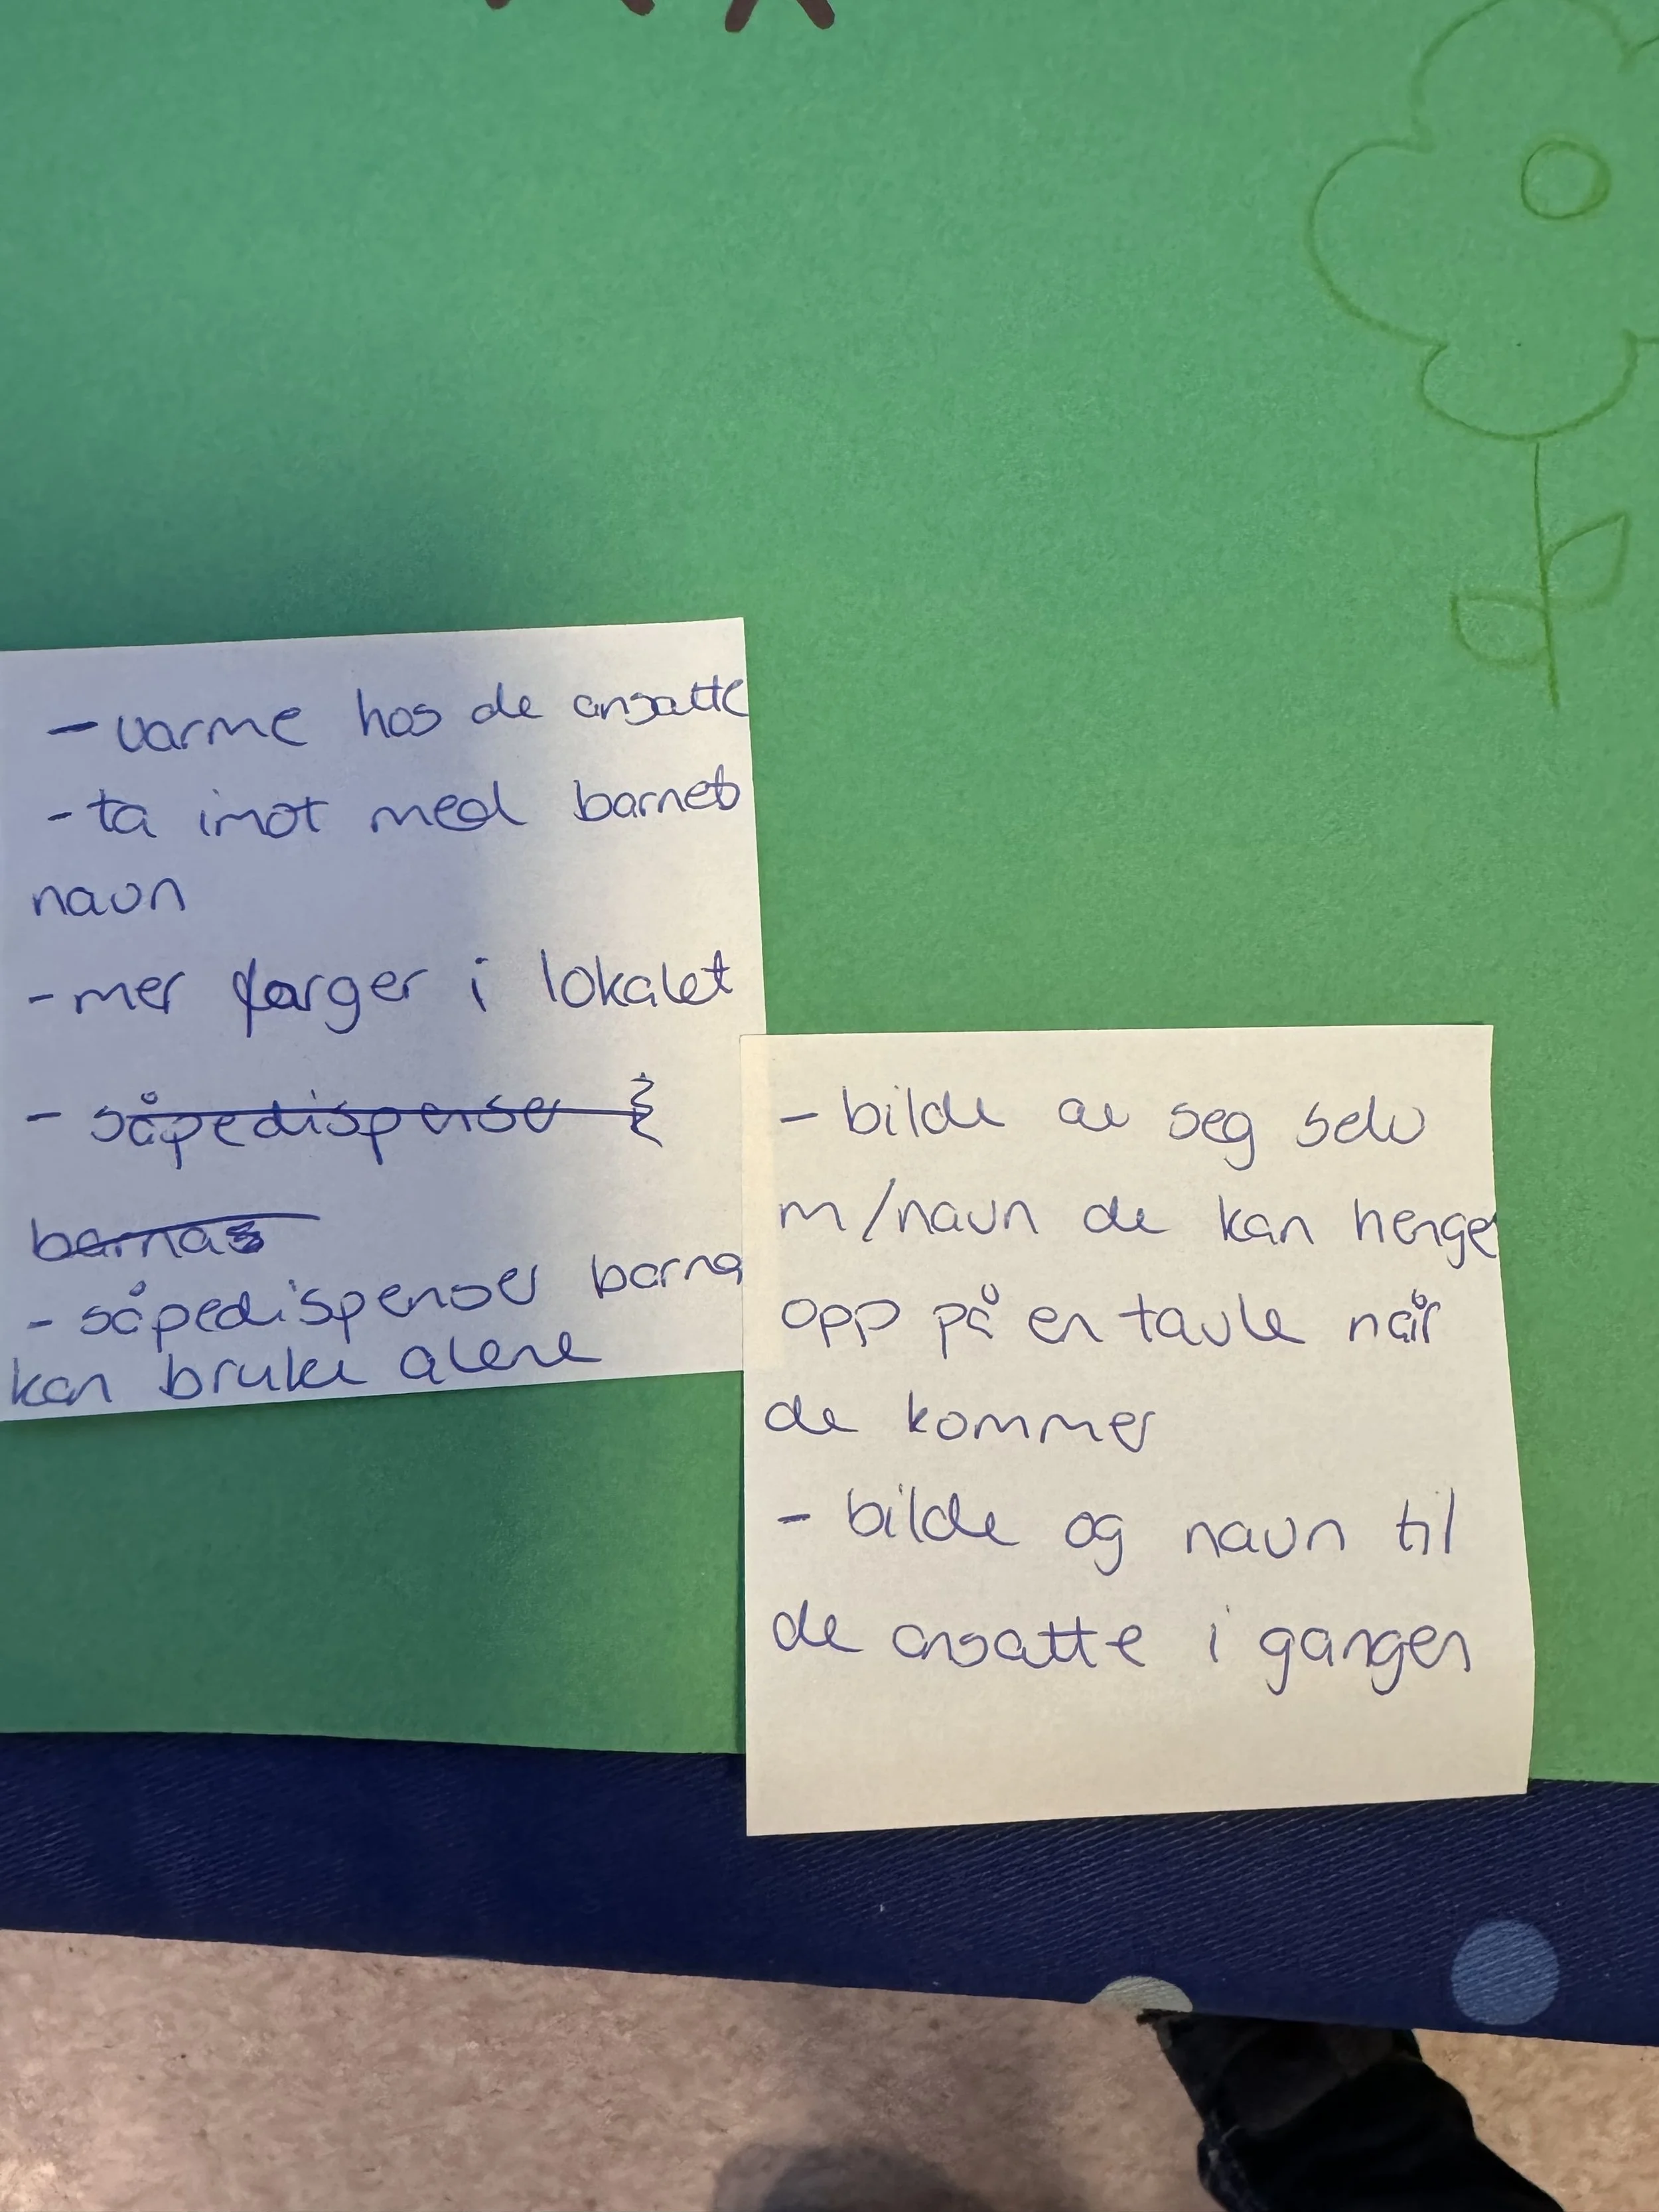 - varme hos de ansatte
- ta imot med barnets
navn
- mer farger i lokalet
- såpedispenser
barnas
- såpedispenser barna
kan bruke alene
- bilde av seg selv
m/navn de kan henge
opp på en tavle når
de kommer
- bilde og navn til
de ansatte i gangen